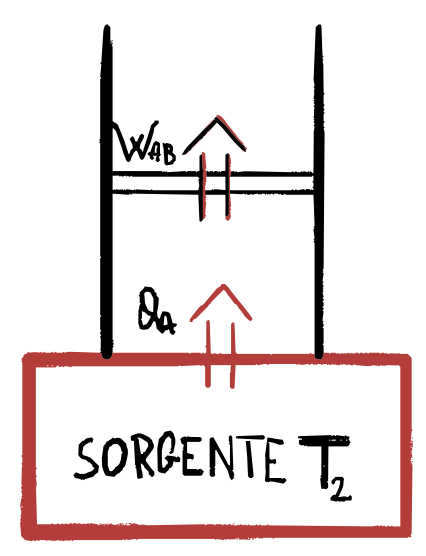 W_AB
Q_A
SORGENTE T_2